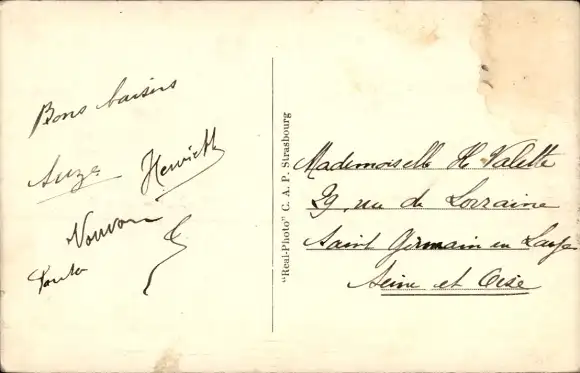 Bons baisers
Suze Henriette
"Real-Photo" C. A. P. Strasbourg
Mademoiselle H Valette
29, rue de Lorraine
Saint Germain en Laye
Seine et Oise